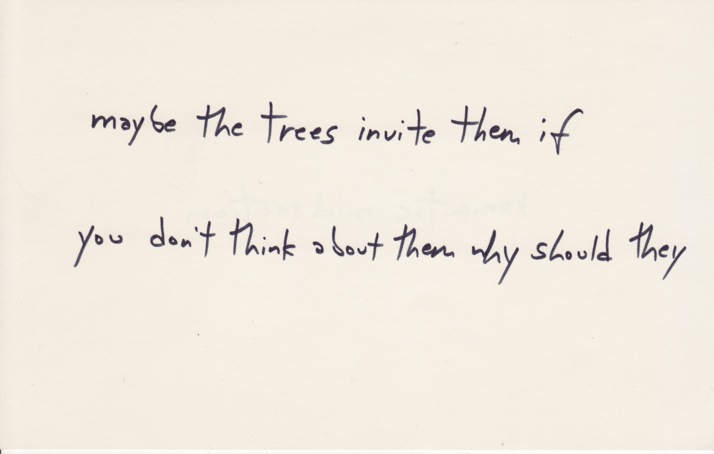 maybe the trees invite them if
you don't think about them why should they